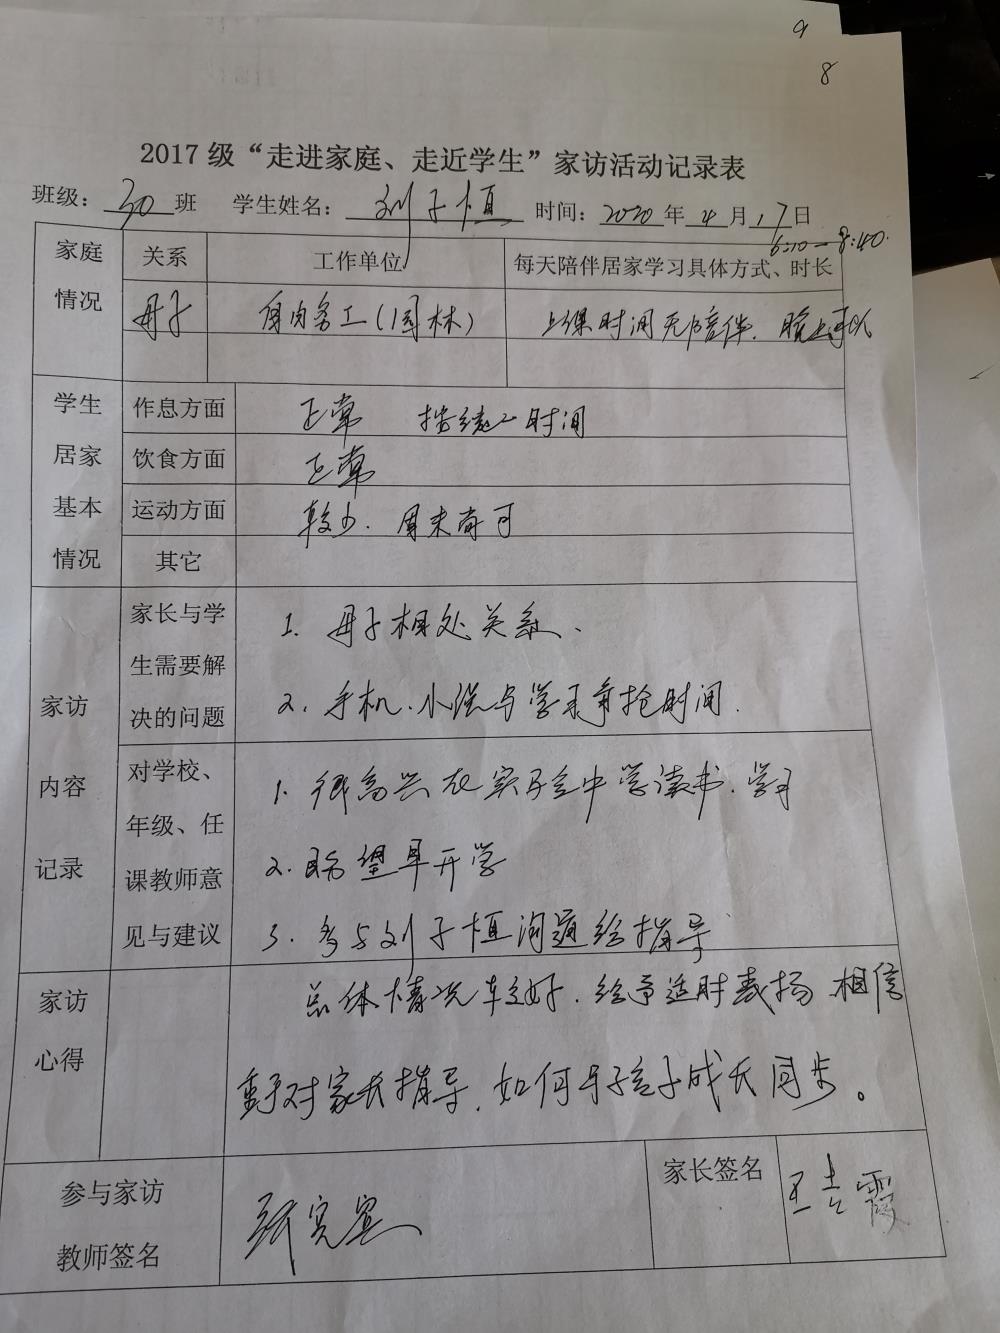 9
8
2017级“走进家庭、走近学生”家访活动记录表
班级：30班 学生姓名：刘子恒 时间：2020年4月17日
6:10—8:40.
家庭情况 关系 工作单位 每天陪伴居家学习具体方式、时长
母子 务工（园林） 上课时间无陪伴.晚上可以
学生居家基本情况 作息方面 正常 时间
饮食方面 正常
运动方面 较少.周末尚可
其它
家访内容记录 家长与学生需要解决的问题
1.母子相处关系、
2.手机、小说与学习争抢时间.
对学校、年级、任课教师意见与建议
1.很高兴在实验中学读书.学习
2.盼望早开学
3.多与刘子恒沟通给指导
家访心得 总体情况较好.给予适时表扬.相信
对家长指导.如何与孩子成长同步。
参与家访教师签名 家长签名